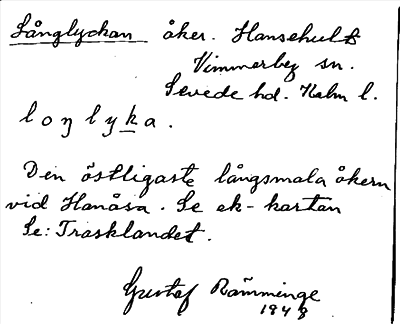 Långlyckan åker. Hansehult
Vimmerby sn.
Sevede hd. Kalm l.
loŋlyka.
Den östligaste långsmala åkern
vid Hanåsa. Se ek-kartan
Se: Trasklandet.
Gustaf Rämminge
1948